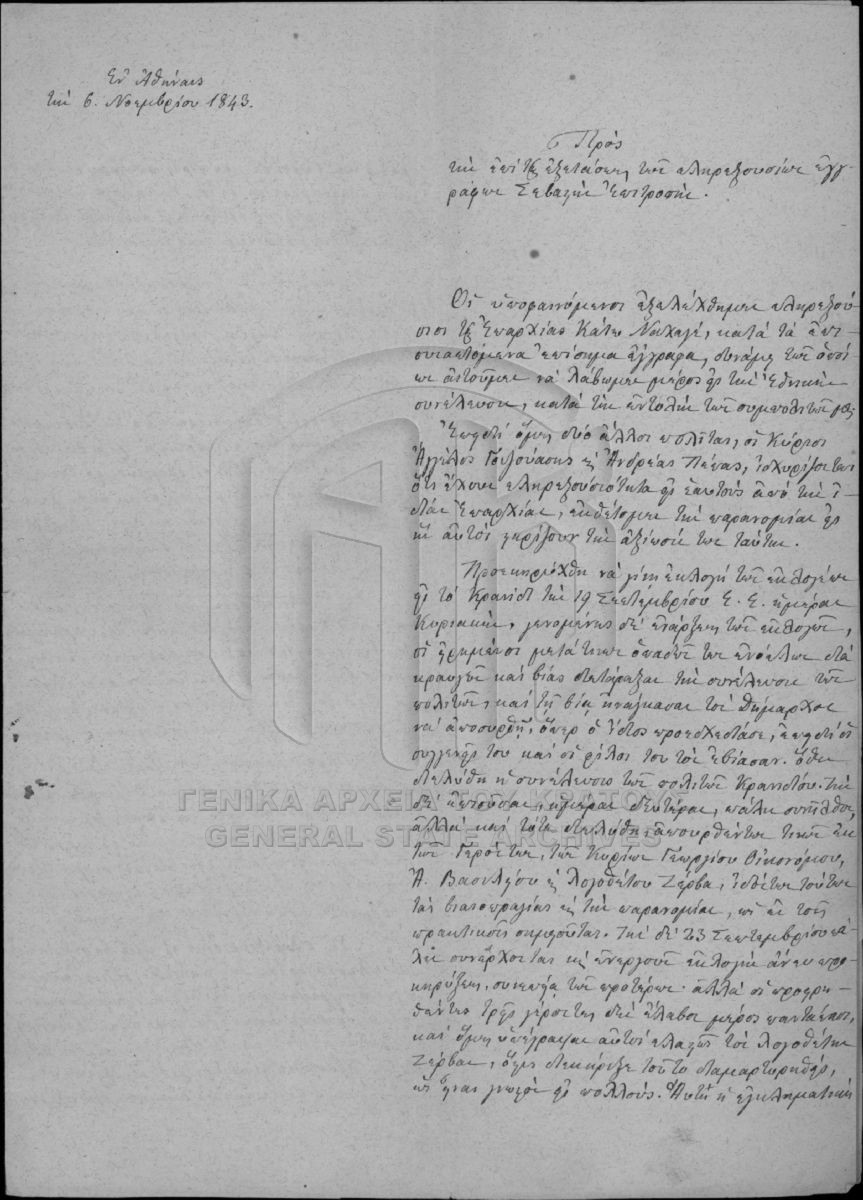 Ἐν Ἀθήναις
τῇ 6. Νοεμβρίου 1843.
Πρὸς
τὴν ἐπὶ τῆς ἐξετάσεως τῶν πληρεξουσίων ἐγγ-
ράφων Σεβαστὴν Ἐπιτροπήν.
Οἱ ὑποφαινόμενοι ἐξελέχθημεν πληρεξού-
σιοι τῆς Ἐπαρχίας Κάτω Ναχαγέ, κατὰ τὰ ἐπι-
συναπτόμενα ἐπίσημα ἔγγραφα, δυνάμει τῶν ὁποί
ων αἰτοῦμεν νὰ λάβωμεν μέρος εἰς τὴν Ἐθνικὴν
συνέλευσιν, κατὰ τὴν ἐντολὴν τῶν συμπολιτῶν μας
Ἐπειδὴ ὅμως δύο ἄλλοι πολῖται, οἱ Κύριοι
Ἀγγέλος καὶ Ἀνδρέας ἰσχυρίζονται
ὅτι ἔχουν πληρεξουσιότητα εἰς ἑαυτοὺς ἀπὸ τὴν ἰ-
δίαν Ἐπαρχίαν, ἐκθέτομεν τὴν παρανομίαν εἰς
ἣν αὐτοὶ στηρίζουν τὴν ἀξίωσίν των ταύτην.
Προεκηρύχθη νὰ γίνῃ ἐκλογὴ τῶν ἐκλογέων
εἰς τὸ Κρανίδι τὴν 19 Σεπτεμβρίου Ε. Ε. ἡμέραν
Κυριακὴν, γενομένης δὲ ἐνάρξεως τῶν ἐκλογῶν,
οἱ εἰρημένοι μετά τινων ὀπαδῶν των ἐνόπλων διὰ
κραυγῶν καὶ βίας διετάραξαν τὴν συνέλευσιν τῶν
πολιτῶν, καὶ τῇ βίᾳ ἠνάγκασαν τὸν Δήμαρχον
νὰ ἀποσυρθῇ, ὅπερ ὁ ἴδιος προεσχεδίασε, ἐπειδὴ οἱ
συγγενεῖς του καὶ οἱ φίλοι του τὸν ἐβίασαν. Ὅθεν
διελύθη ἡ συνέλευσις τῶν πολιτῶν Κρανιδίου. Τὴν
δὲ ἐπιοῦσαν, ἡμέραν δευτέραν, πάλιν συνῆλθον,
ἀλλὰ καὶ τότε διελύθη, ἀποσυρθέντων τινῶν ἐκ
τῶν Γερόντων, τῶν Κυρίων Γεωργίου Οἰκονόμου,
Α. Βασιλείου καὶ Λογοθέτου Ζέρβα, ἰδόντων τούτων
τὰς βιαιοπραγίας καὶ τὴν παρανομίαν, ὡς ἐκ τῶν
πρακτικῶν σημειοῦται. Τὴν δὲ 23 Σεπτεμβρίου πά-
λιν συνέρχονται καὶ ἐνεργοῦν ἐκλογὴν ἄνευ προ-
κηρύξεως, συνεπείᾳ τῶν προτέρων· ἀλλὰ οἱ προειρη-
θέντες τρεῖς γέροντες δὲν ἔλαβον μέρος παντάπασι,
καὶ ὅμως ὑπέγραψαν αὐτοὶ τὸν Λογοθέτην
Ζέρβαν, ὅστις διεκήρυξε τοῦτο διαμαρτυρηθείς,
ὡς εἶναι γνωστὸν εἰς πολλούς. Αὐτὴ ἡ ἐγκληματικὴ
ΓΕΝΙΚΑ ΑΡΧΕΙΑ ΤΟΥ ΚΡΑΤΟΥΣ
GENERAL STATE ARCHIVES